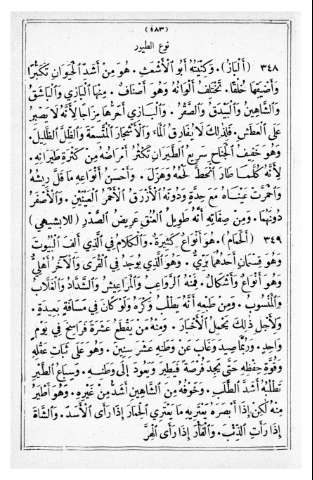 (٤٨٣)
نوع الطيور
٣٤٨ (أَلْبَازُ). وَكُنْيَتُهُ أَبُو الْأَشْعَثِ. هُوَ مِنْ أَشَدِّ الْحَيَوَانِ تَكَبُّرًا
وَأَضْيَقِهَا خُلُقًا. تَخْتَلِفُ أَلْوَانُهُ وَهُوَ أَصْنَافٌ. مِنْهَا الْبَازِي وَالْبَاشَقُ
وَالشَّاهِينُ وَالْبَيْدَقُ وَالصَّقْرُ. وَالْبَازِي أَحَرُّهَا مِزَاجًا لِأَنَّهُ لَا يَصْبِرُ
عَلَى الْعَطَشِ. فَلِذٰلِكَ لَا يُفَارِقُ الْمَاءَ وَالْأَشْجَارَ الْمُتَّسِعَةَ وَالظِّلَّ الظَّلِيلَ.
وَهُوَ خَفِيفُ الْجَنَاحِ سَرِيعُ الطَّيَرَانِ تَكْثُرُ أَمْرَاضُهُ مِنْ كَثْرَةِ طَيَرَانِهِ.
لِأَنَّهُ كُلَّمَا طَارَ انْحَطَّ لَحْمُهُ وَهَزَلَ. وَأَحْسَنُ أَنْوَاعِهِ مَا قَلَّ رِيشُهُ
وَاحْمَرَّتْ عَيْنَاهُ مَعَ حِدَّةٍ وَدُونَهُ الْأَزْرَقُ الْأَحْمَرُ الْعَيْنَيْنِ. وَالْأَصْفَرُ
دُونَهُمَا. وَمِنْ صِفَاتِهِ أَنَّهُ طَوِيلُ الْعُنُقِ عَرِيضُ الصَّدْرِ (للابشيهي)
٣٤٩ (أَلْحَمَامُ). هُوَ أَنْوَاعٌ كَثِيرَةٌ. وَالْكَلَامُ فِي الَّذِي أَلِفَ الْبُيُوتَ
وَهُوَ قِسْمَانِ أَحَدُهُمَا بَرِّيٌّ. وَهُوَ الَّذِي يُوجَدُ فِي الْقُرَى وَالْآخَرُ أَهْلِيٌّ
وَهُوَ أَنْوَاعٌ وَأَشْكَالٌ. فَمِنْهُ الرَّوَاعِبُ وَالْمَرَاعِيشُ وَالشَّدَّادُ وَالْغَلَّابُ
وَالْمَنْسُوبُ. وَمِنْ طَبْعِهِ أَنَّهُ يَطْلُبُ وَكْرَهُ وَلَوْ كَانَ فِي مَسَافَةٍ بَعِيدَةٍ.
وَلِأَجْلِ ذٰلِكَ يَحْمِلُ الْأَخْبَارَ. وَمِنْهُ مَنْ يَقْطَعُ عَشَرَةَ فَرَاسِخَ فِي يَوْمٍ
وَاحِدٍ. وَرُبَّمَا صِيدَ وَغَابَ عَنْ وَطَنِهِ عَشْرَ سِنِينَ. وَهُوَ عَلَى ثَبَاتِ عَقْلِهِ
وَقُوَّةِ حِفْظِهِ حَتَّى يَجِدَ فُرْصَةً فَيَطِيرُ وَيَعُودُ إِلَى وَطَنِهِ. وَسِبَاعُ الطَّيْرِ
تَطْلُبُهُ أَشَدَّ الطَّلَبِ. وَخَوْفُهُ مِنَ الشَّاهِينِ أَشَدُّ مِنْ غَيْرِهِ. وَهُوَ أَطْيَرُ
مِنْهُ لٰكِنْ إِذَا أَبْصَرَهُ يَعْتَرِيهِ مَا يَعْتَرِي الْحِمَارَ إِذَا رَأَى الْأَسَدَ. وَالشَّاةَ
إِذَا رَأَتِ الذِّئْبَ. وَالْفَأْرَ إِذَا رَأَى الْهِرَّ